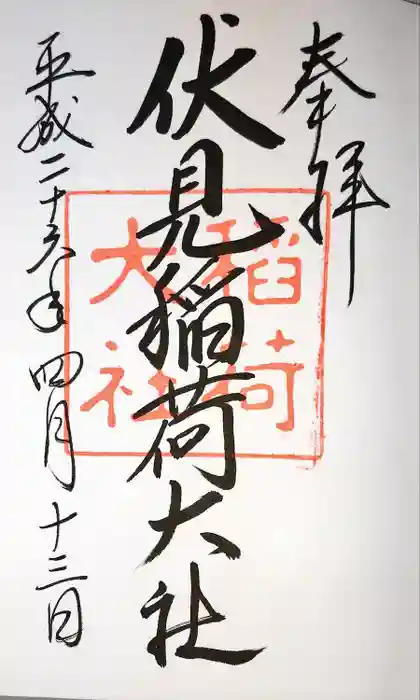 奉拝
伏見稲荷大社
稲荷
大社
平成二十六年四月十三日